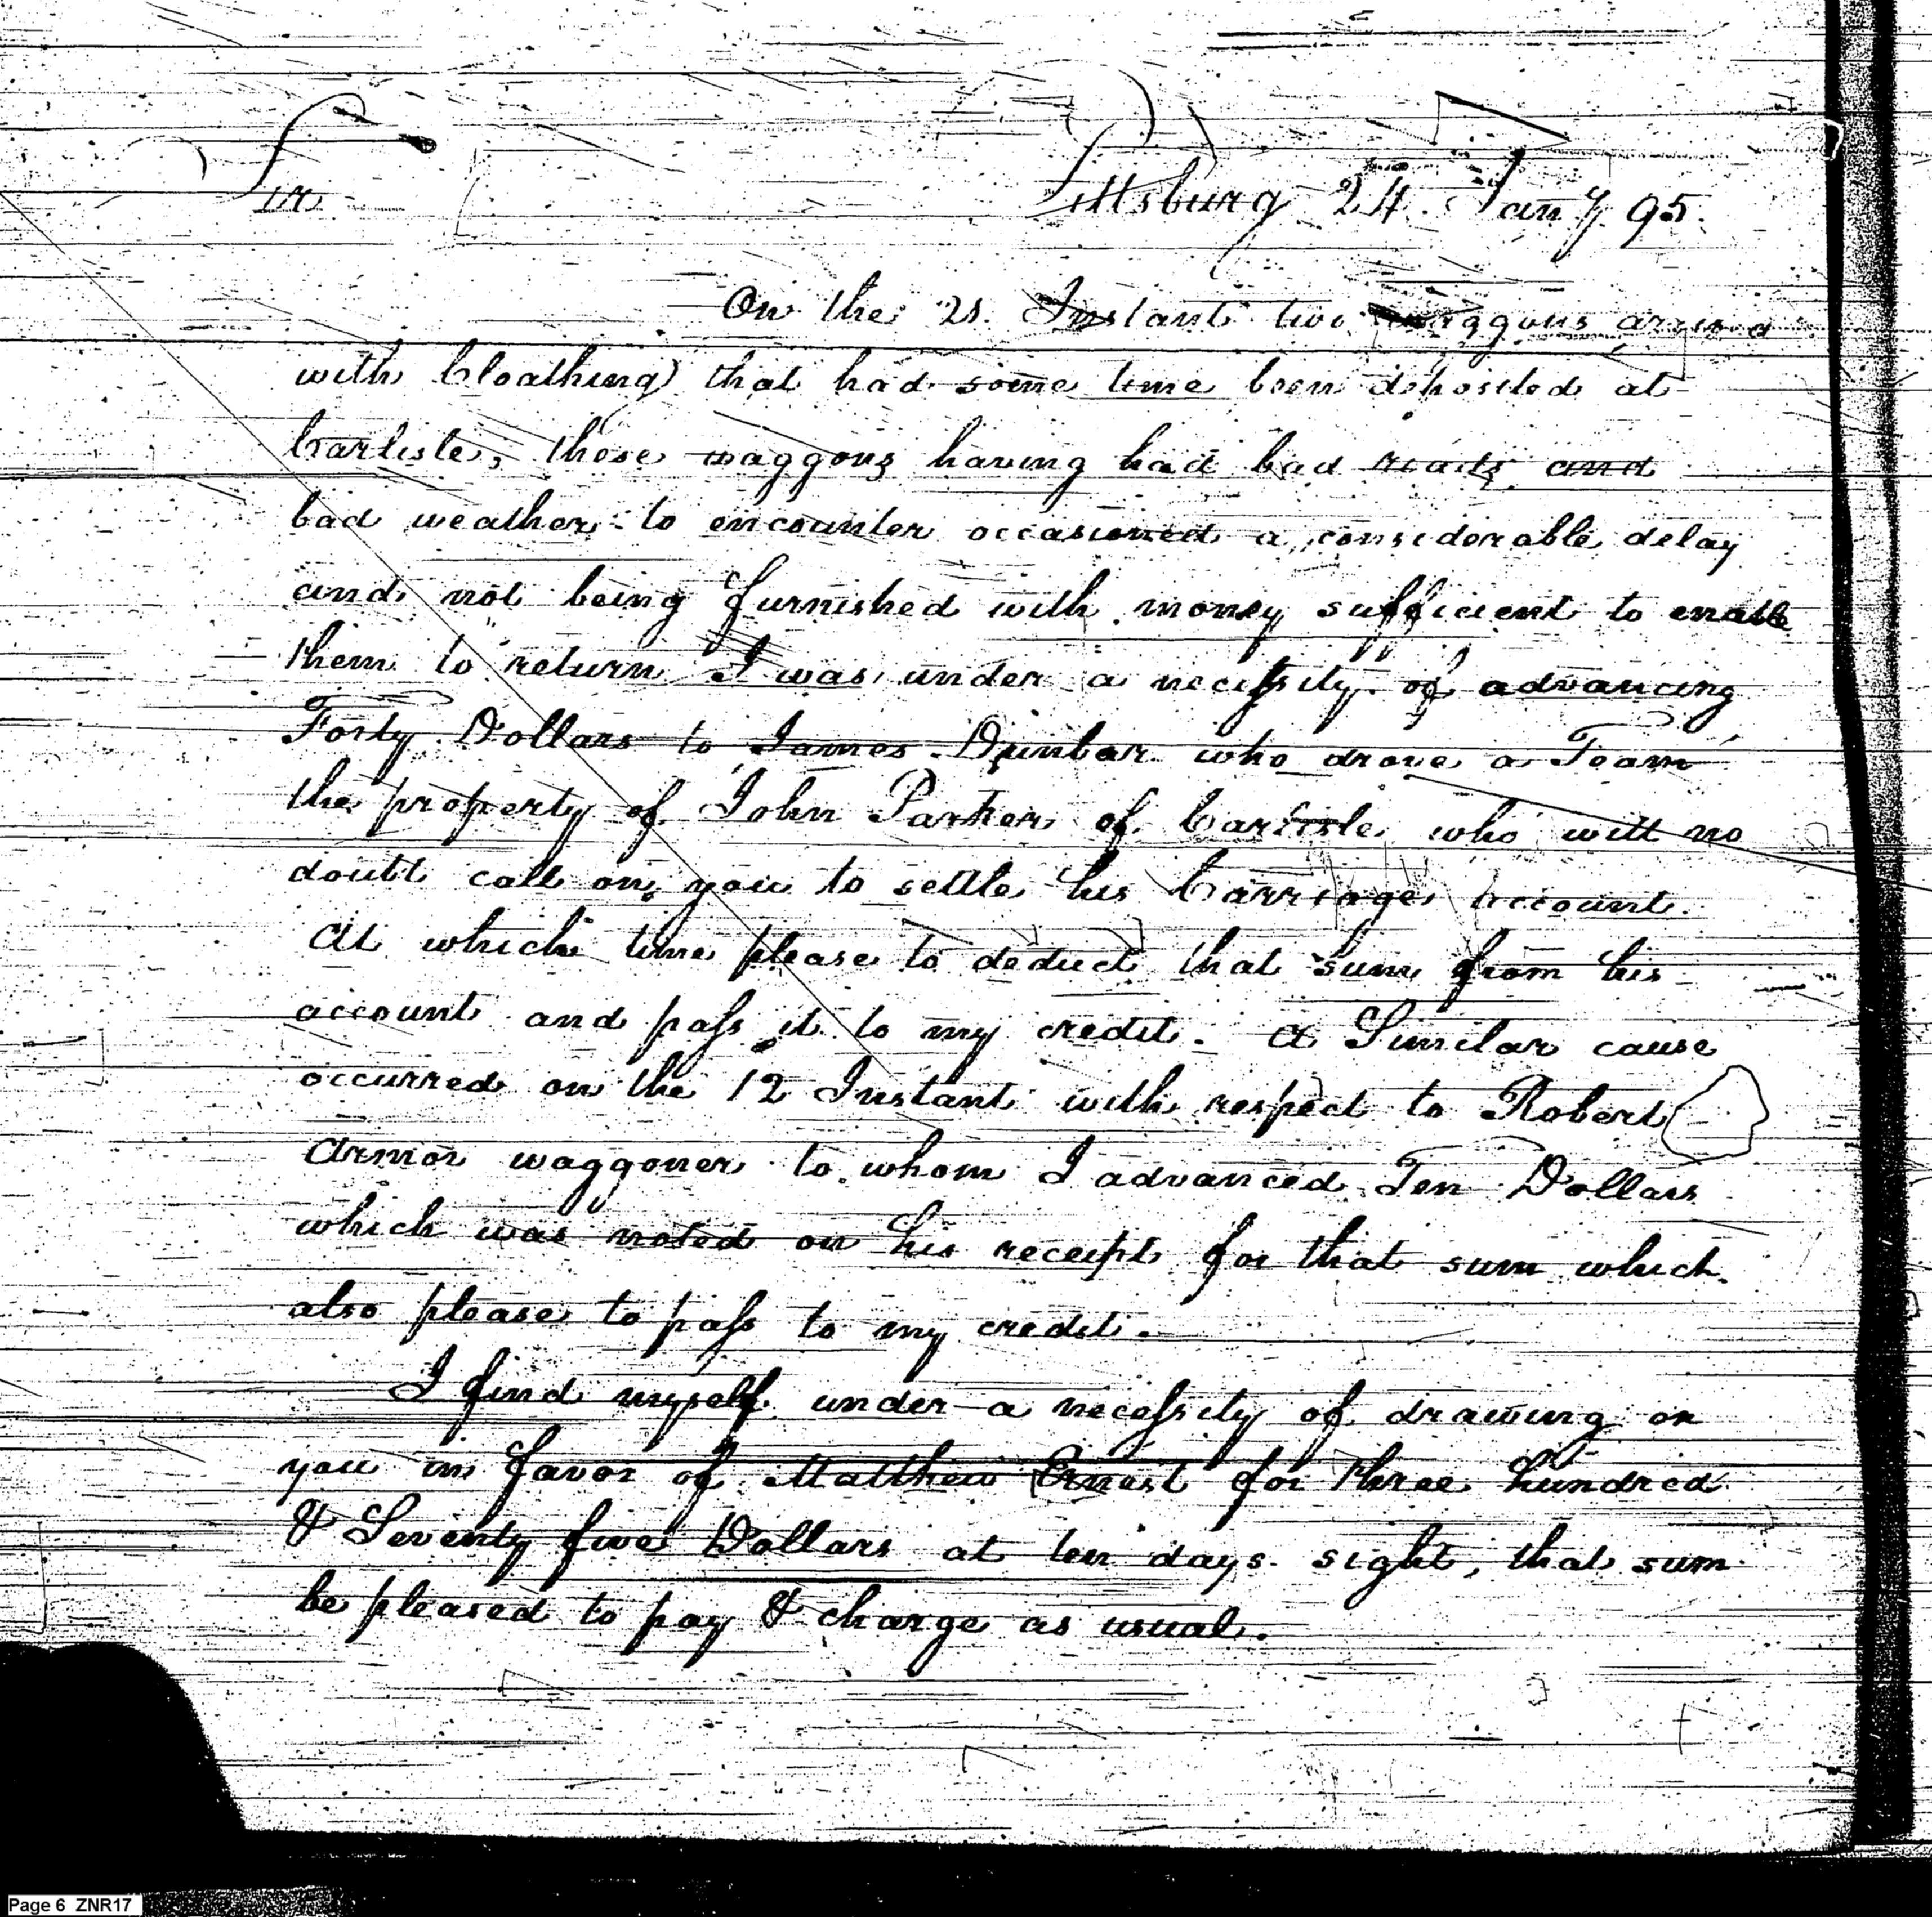 Sir
Pittsburg 24. Jany. 95.
On the 21. Instant two waggons arrived
with Cloathing that had some time been deposited at
Carlisle, those waggons having had bad roads and
bad weather to encounter occasioned a considerable delay
and not being furnished with money sufficient to enable
them to return I was under a necessity of advancing
Forty Dollars to James Dunbar who drove a Team
the property of John Parker of Carlisle who will no
doubt call on you to settle his Carriage account.
At which time please to deduct that sum from his
account and pass it to my credit. A Similar cause
occurred on the 12 Instant with respect to Robert
Armor waggoner to whom I advanced Ten Dollars
which was noted on his receipt for that sum which
also please to pass to my credit.
I find myself under a necessity of drawing on
you in favor of Matthew Ernest for three hundred
& Seventy five Dollars at ten days sight, that sum
be pleased to pay & charge as usual.
Page 6 ZNR17